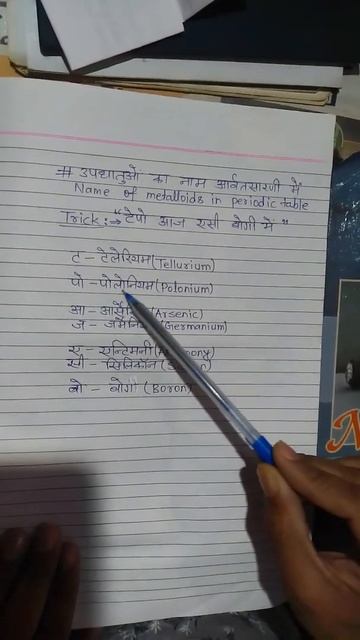 # उपधातुओं का नाम आर्वतसारणी में
Name of metalloids in periodic table
Trick:→ "टेपो आज एसी बोगी में"
ट - टेलेरियम (Tellurium)
पो - पोलोनियम (Polonium)
आ - (Arsenic)
ज - (Germanium)
ए - एन्टिमनी
सी - सिलिकॉन
बो - बोगी (Boron)